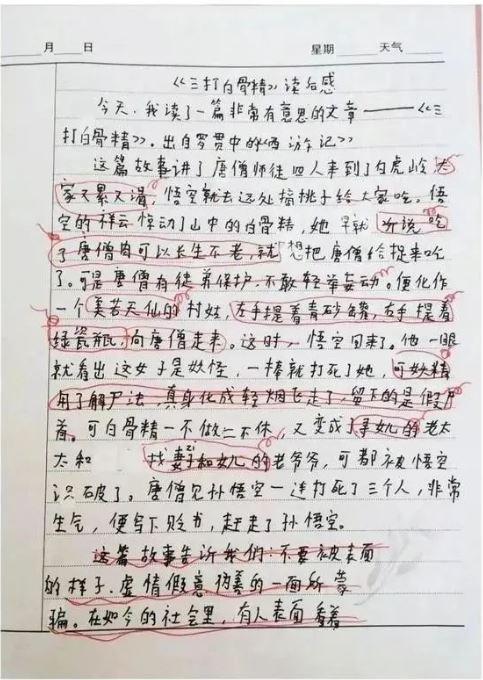 月 日 星期 天气
《三打白骨精》读后感
今天，我读了一篇非常有意思的文章——《三
打白骨精》。出自罗贯中的《西游记》
这篇故事讲了唐僧师徒四人来到了白虎岭大
家又累又渴，悟空就去远处摘桃子给大家吃。悟
空的祥云惊动了山中的白骨精，她早就听说吃
了唐僧肉可以长生不老，就想把唐僧给捉来吃
了。可是唐僧有徒弟保护，不敢轻举妄动。便化作
一个美若天仙的村姑，左手提着青砂罐，右手提着
绿瓷瓶，向唐僧走来。这时，悟空回来了。他一眼
就看出这女子是妖怪，一棒就打死了她，可妖精
用了解尸法，真身化成轻烟飞走了，留下的是假尸
首。可白骨精一不做二不休，又变成了寻女儿的老太
太和 找妻子和女儿的老爷爷，可都被悟空
识破了。唐僧见孙悟空一连打死了三个人，非常
生气，便写下贬书，赶走了孙悟空。
这篇故事告诉我们：不要被表面
的样子、虚情假意伪善的一面所蒙
骗。在如今的社会里，有人表面看着